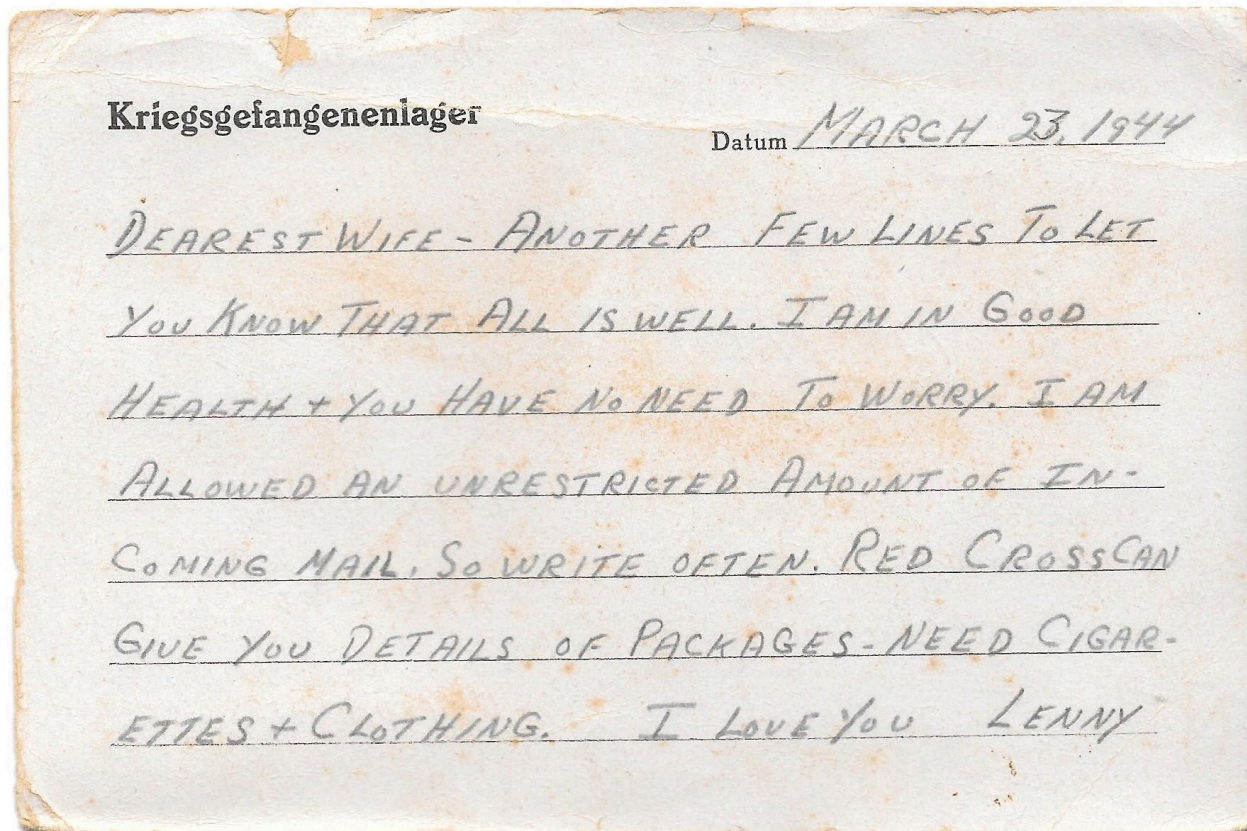 Kriegsgefangenenlager
Datum MARCH 23, 1944
DEAREST WIFE - ANOTHER FEW LINES TO LET
YOU KNOW THAT ALL IS WELL. I AM IN GOOD
HEALTH + YOU HAVE NO NEED TO WORRY. I AM
ALLOWED AN UNRESTRICTED AMOUNT OF IN-
COMING MAIL. SO WRITE OFTEN. RED CROSS CAN
GIVE YOU DETAILS OF PACKAGES - NEED CIGAR-
ETTES + CLOTHING. I LOVE YOU LENNY